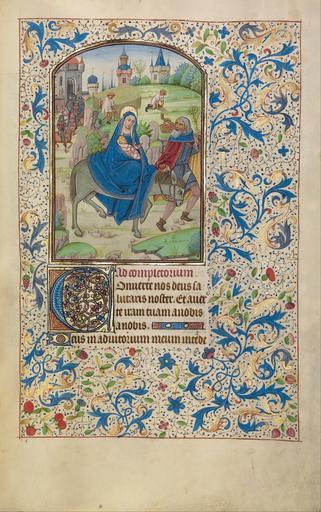 Ad completorium.
Conuerte nos deus sa
lutaris noster. Et auer
te iram tuam a nobis
a nobis.
Deus in adiutorium meum intende